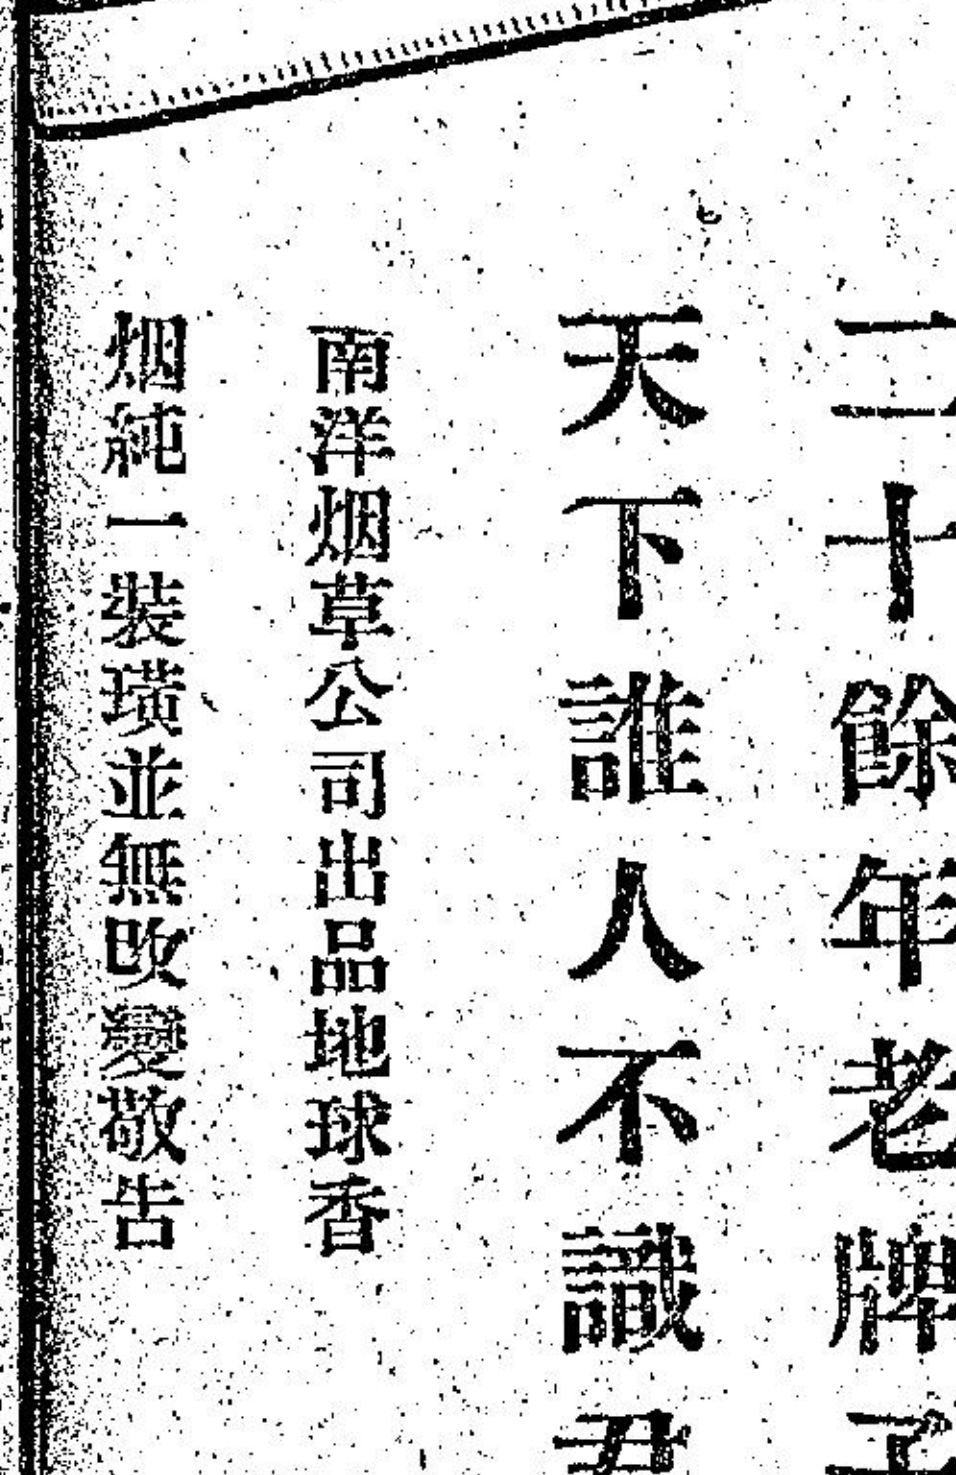 二十餘年老牌子
天下誰人不識君
南洋烟草公司出品地球香
烟純一裝璜並無改變敬告